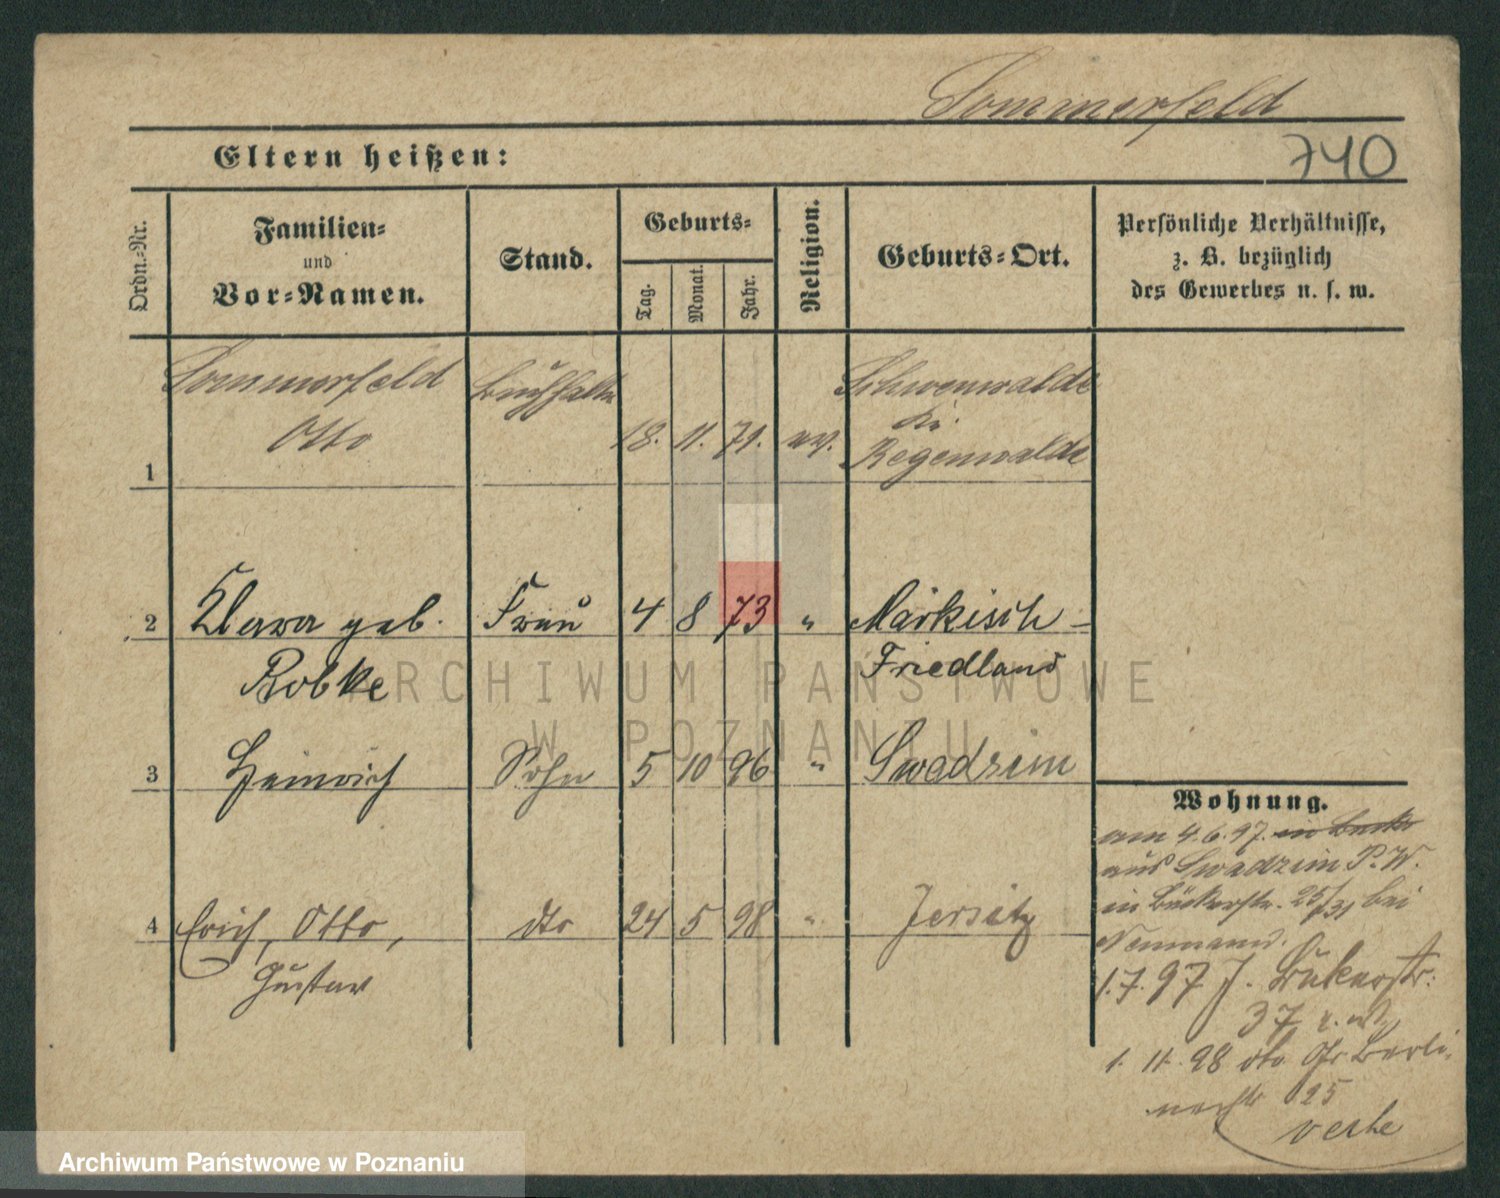 Sommerfeld
740
Eltern heißen:
Ordn.-Nr.
Familien-
und
Vor-Namen.
Stand.
Geburts-
Tag.
Monat.
Jahr.
Religion.
Geburts-Ort.
Persönliche Verhältnisse,
z. B. bezüglich
des Gewerbes u. s. w.
1
Sommerfeld
Otto
Buchhalter
18. 11. 71. ev.
Schwenwalde
Regenwalde
2
Klara geb.
Robke
Frau
4 8 73 "
Märkisch-
Friedland
3
Heinrich
Sohn
5 10 96 "
Swadzim
4
Erich, Otto,
Gustav
dto
24 5 98 "
Jersitz
Wohnung.
am 4.6.97.
aus Swadzim P. W.
in Bäckerstr. 25/31 bei
Neumann.
1.7.97 J. Bukerstr.
37
1. 11. 98 dto Berli-
nerstr 25
verte
ARCHIWUM PAŃSTWOWE
W POZNANIU
Archiwum Państwowe w Poznaniu